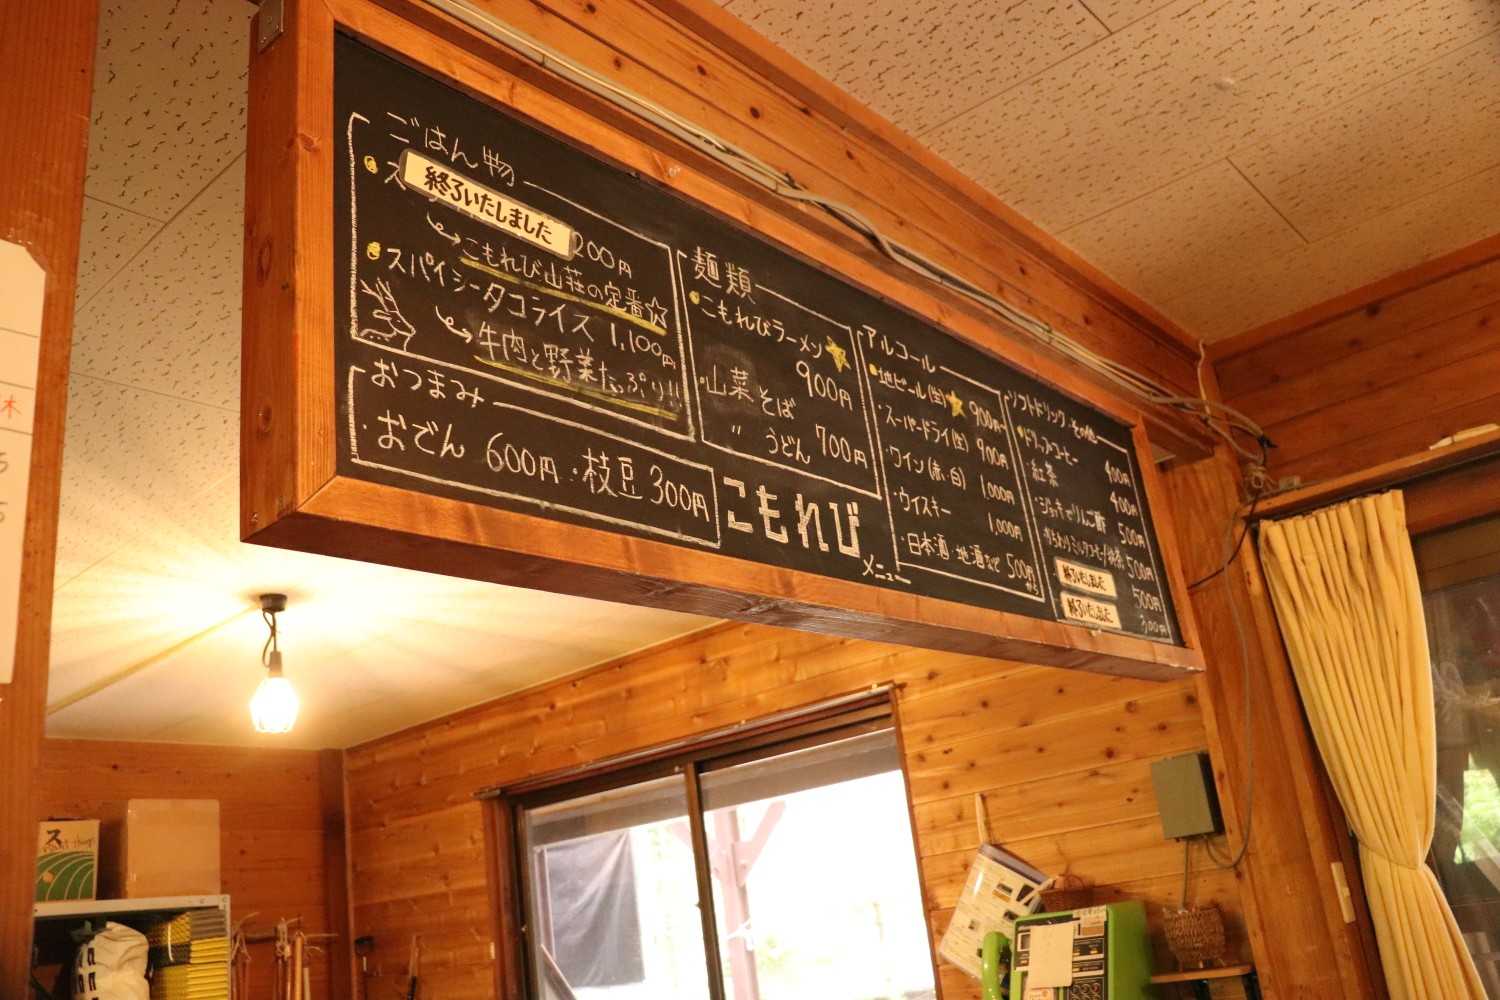 ごはん物
ス
終了いたしました
200円
こもれび山荘の定番☆
スパイシータコライス 1,100円
牛肉と野菜たっぷり!!
おつまみ
・おでん 600円 ・枝豆 300円
麺類
こもれびラーメン
900円
・山菜そば
〃 うどん 700円
こもれび
メニュー
アルコール
・地ビール(生) 900円~
・スーパードライ(生) 900円
・ワイン(赤・白) 1,000円
・ウイスキー 1,000円
・日本酒・地酒など 500円から
ソフトドリンク・その他
・ドリップコーヒー 400円
紅茶 400円
・ジョッキりんご酢 500円
500円
終了いたしました 500円
終了いたしました 300円
木